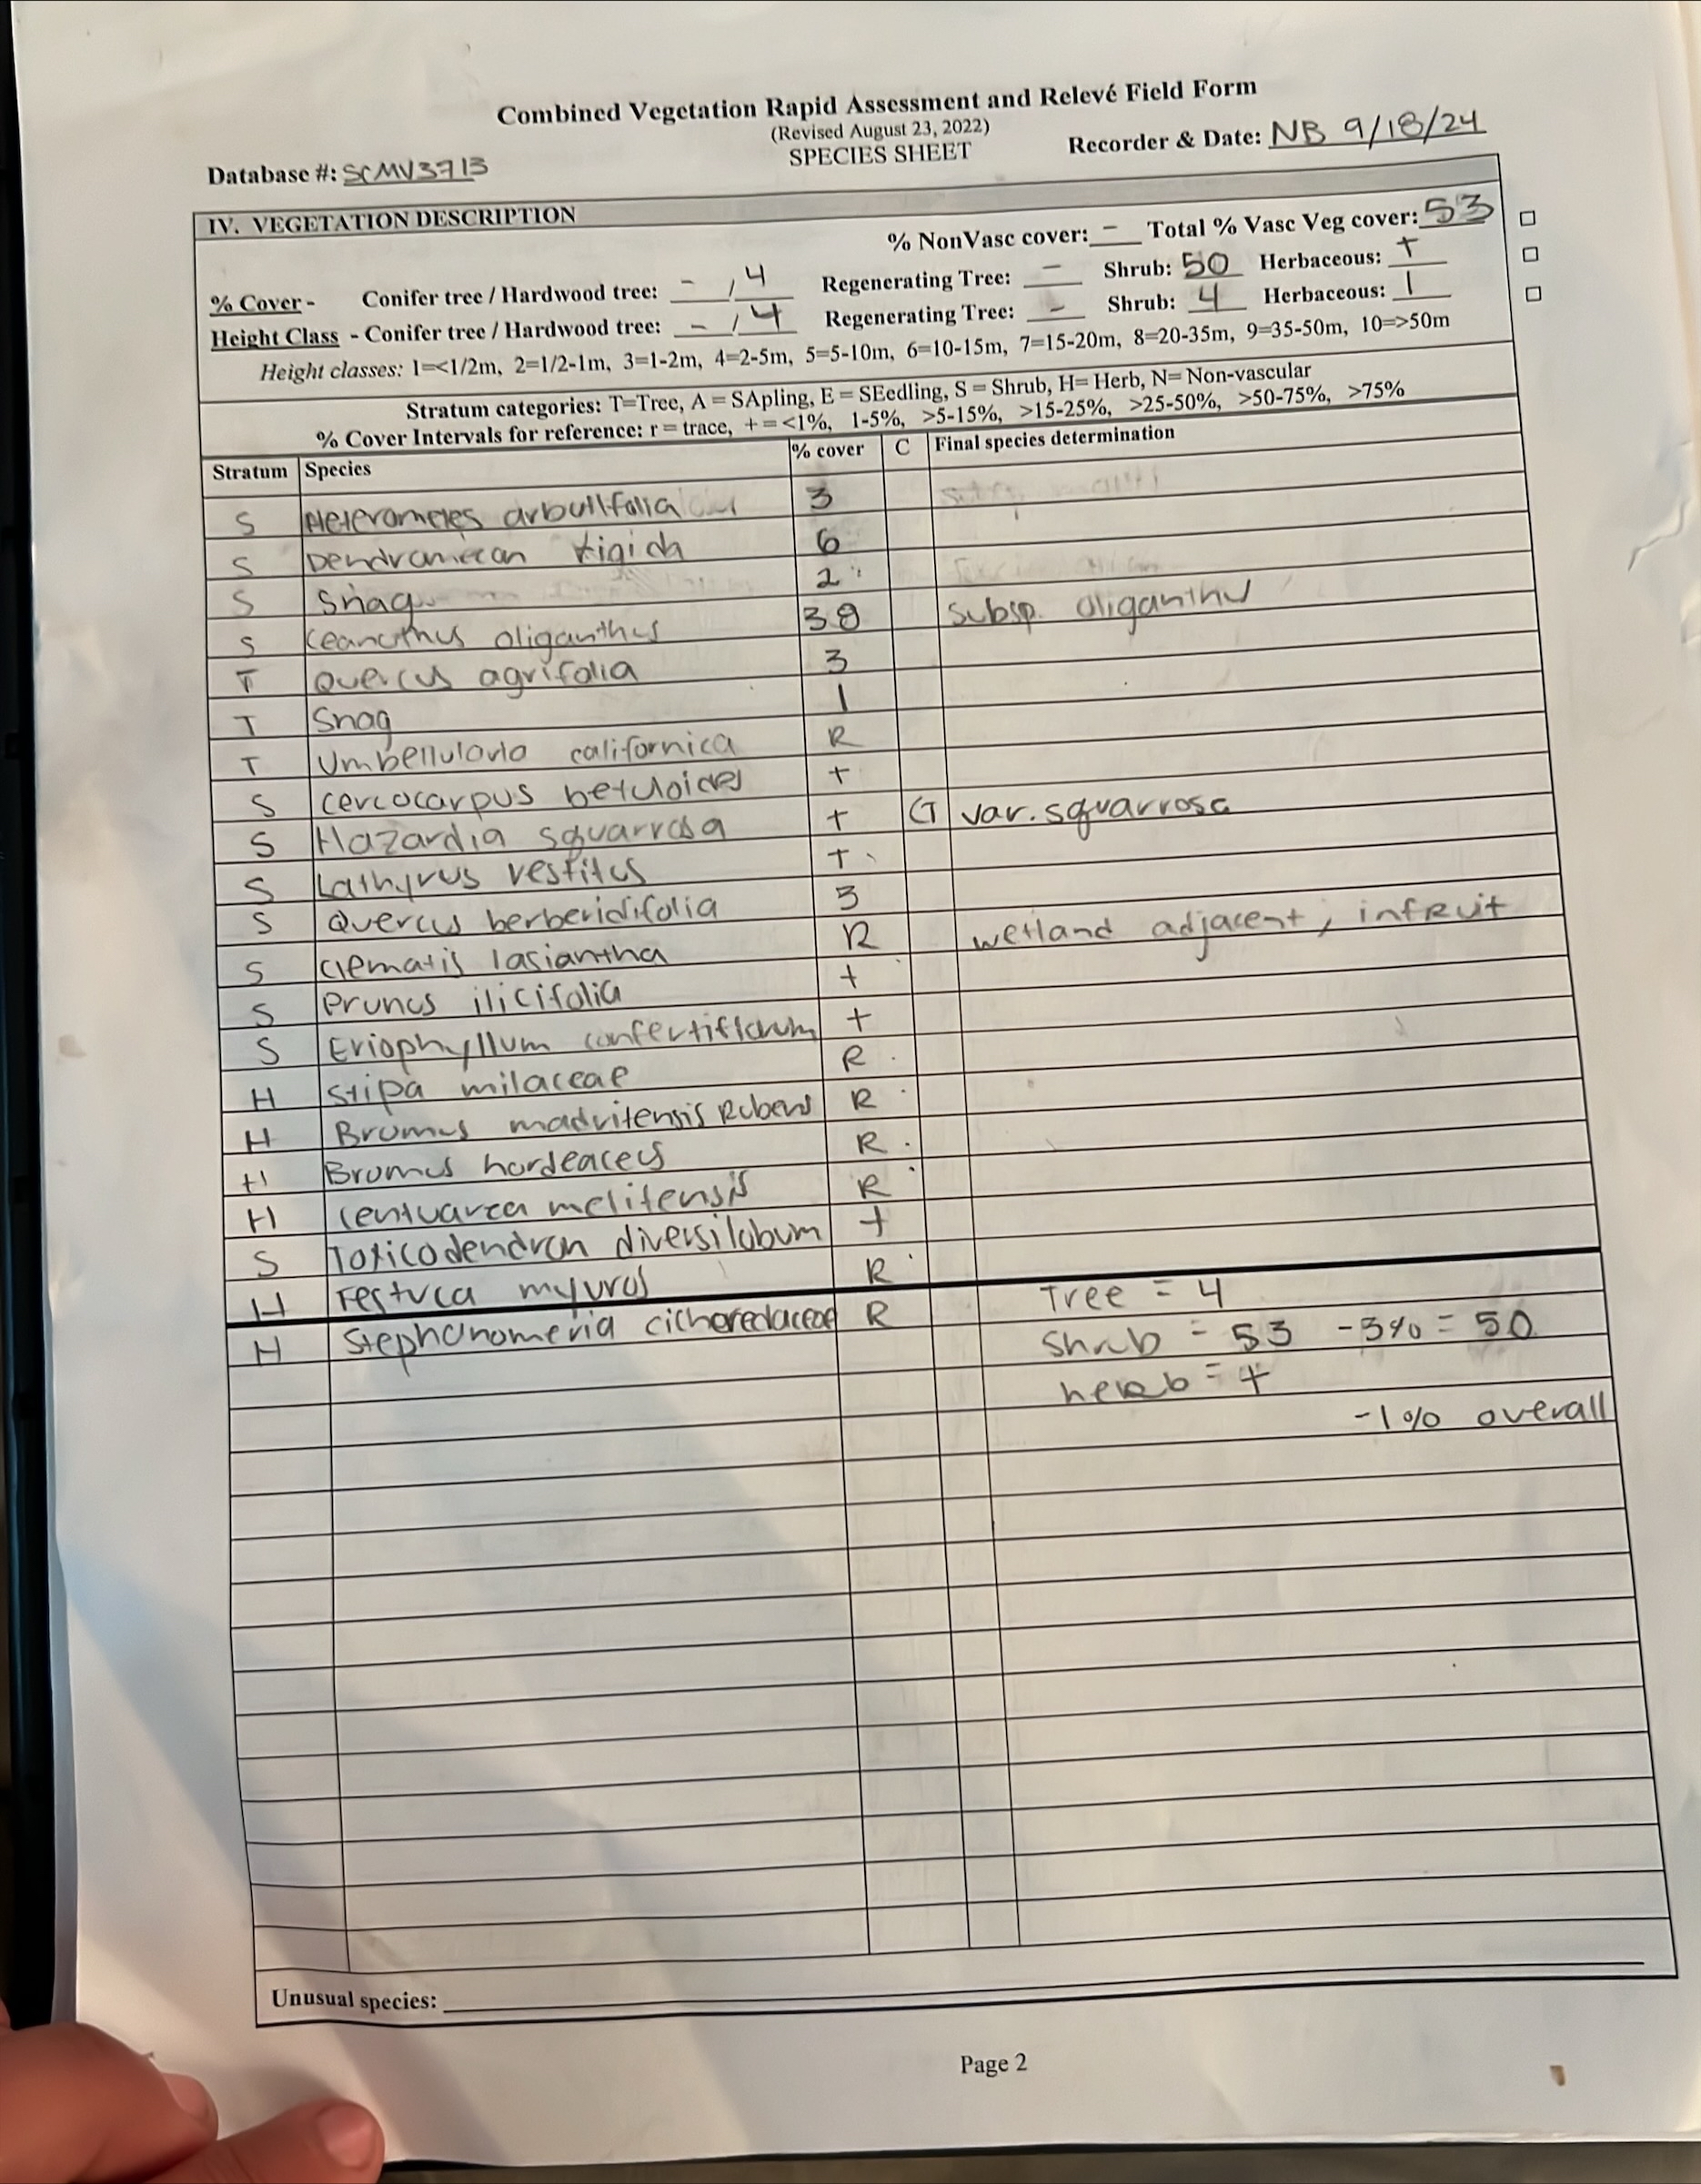 Combined Vegetation Rapid Assessment and Relevé Field Form
(Revised August 23, 2022)
SPECIES SHEET
Database #: SCMV3713 Recorder & Date: NB 9/18/24
IV. VEGETATION DESCRIPTION
% NonVasc cover: - Total % Vasc Veg cover: 53
% Cover - Conifer tree / Hardwood tree: - / 4 Regenerating Tree: - Shrub: 50 Herbaceous: +
Height Class - Conifer tree / Hardwood tree: - / 4 Regenerating Tree: - Shrub: 4 Herbaceous: 1
Height classes: 1=<1/2m, 2=1/2-1m, 3=1-2m, 4=2-5m, 5=5-10m, 6=10-15m, 7=15-20m, 8=20-35m, 9=35-50m, 10=>50m
Stratum categories: T=Tree, A = SApling, E = SEedling, S = Shrub, H= Herb, N= Non-vascular
% Cover Intervals for reference: r = trace, + = <1%, 1-5%, >5-15%, >15-25%, >25-50%, >50-75%, >75%
Stratum Species % cover C Final species determination
S Heteromeles arbutifolia 3
S Dendromecon rigida 6
S Snag 2
S Ceanothus oliganthus 38 subsp. oliganthus
T Quercus agrifolia 3
T Snag 1
T Umbellularia californica R
S Cercocarpus betuloides +
S Hazardia squarrosa + G var. squarrosa
S Lathyrus vestitus +
S Quercus berberidifolia 3
S Clematis lasiantha R wetland adjacent, in fruit
S Prunus ilicifolia +
S Eriophyllum confertiflorum +
H Stipa milaceae R
H Bromus madritensis Rubens R
H Bromus hordeaceus R
H Centuarea melitensis R
S Toxicodendron diversilobum +
H Festuca myuros R
H Stephanomeria cichoredaceae R Tree = 4
Shrub = 53 -3% = 50
herb = +
-1% overall
Unusual species:
Page 2